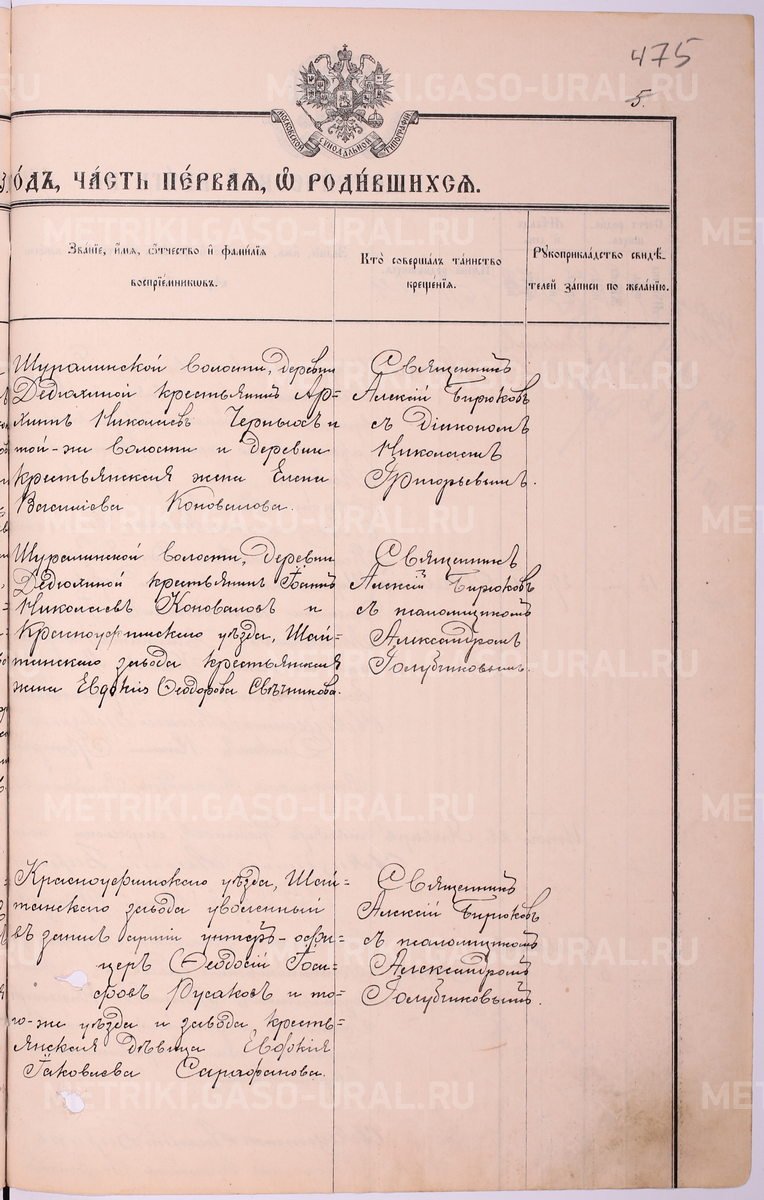 475
5.
МОСКОВСКОЙ СѴНОДАЛЬНОЙ ТИПОГРАФІИ
О́ДЪ, ЧА́СТЬ ПЕ́РВАЯ, Ѡ҆ РОДИ́ВШИХСЯ.
Зва́нїе, и҆́мя, ѻ҆́тчество и҆ фами́лїя
воспрїе́мниковъ.
Кто̀ соверша́лъ та́инство
креще́нїя.
Рꙋкоприкла́дство свидѣ́-
телей за́писи по жела́нїю.
Шуралинской волости, деревни
Дедюхиной крестьянинъ Ар-
хипъ Николаевъ Черныхъ и
той-же волости и деревни
крестьянская жена Елена
Васильева Коновалова.
Священникъ
Алексій Бирюковъ
съ Діакономъ
Николаемъ
Григорьевымъ.
Шуралинской волости, деревни
Дедюхиной крестьянинъ Іоаннъ
Николаевъ Коноваловъ и
Красноуфимскаго уѣзда, Шай-
танскаго завода крестьянская
жена Евдокія Ѳеодорова Свѣчникова.
Священникъ
Алексій Бирюковъ
съ псаломщикомъ
Александромъ
Голубчиковымъ.
Красноуфимскаго уѣзда, Шай=
танскаго завода уволенный
въ запасъ арміи унтеръ-офи=
церъ Ѳеодосій Іоси=
фовъ Русаковъ и то=
го-же уѣзда и завода кресть=
янская дѣвица Евдокія
Іаковлева Сарафанова.
Священникъ
Алексій Бирюковъ
съ псаломщикомъ
Александромъ
Голубчиковымъ.
METRIKI.GASO-URAL.RU